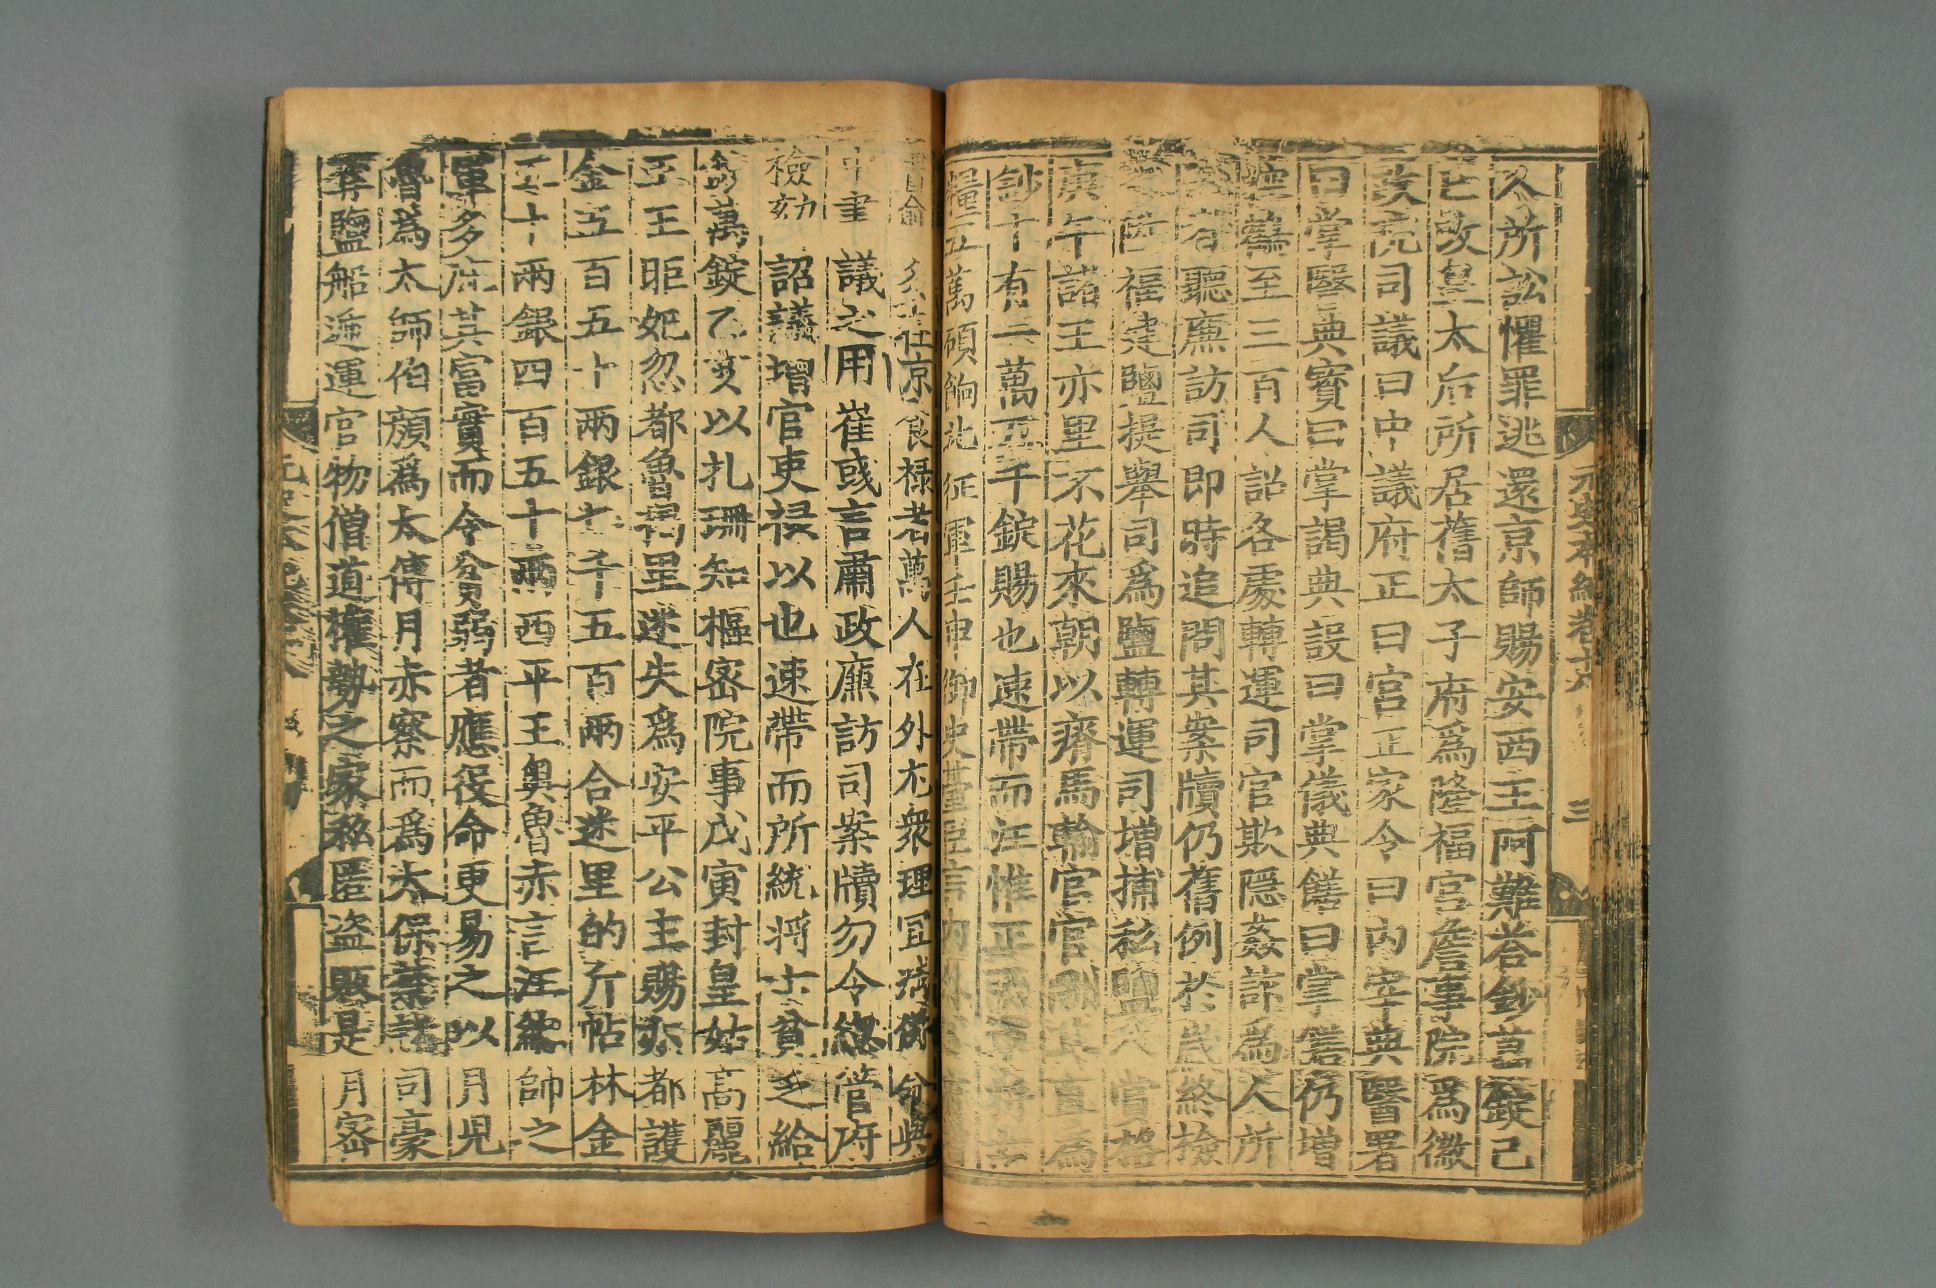 元史本紀卷十八 三
人所訟懼罪逃還京師賜安西王阿難荅鈔萬錠己
巳改皇太后所居舊太子府爲隆福宮詹事院爲徽
政院司議曰中議府正曰宮正家令曰內宰典醫署
曰掌醫典寳曰掌謁典設曰掌儀典饍曰掌饍仍增
控鶴至三百人詔各處轉運司官欺隱姦詐爲人所
訟者聽廉訪司即時追問其案牘仍舊例於歲終檢
之陞福建鹽提舉司爲鹽轉運司增捕私鹽人賞格
庚午諸王亦里不花來朝以瘠馬輸官官酬其直爲
鈔十有一萬五千錠賜也速帶而汪惟正兩軍將士
糧五萬碩餉北征軍壬申御史臺臣言內外
仕京食祿者萬人在外尤衆理宜減併命與
中書議之用崔彧言肅政廉訪司案牘勿令總管府
檢劾詔議增官吏祿以也速帶而所統將士貧乏給
鈔萬錠乙亥以扎珊知樞密院事戊寅封皇姑高麗
王王昛妃忽都魯揭里迷失爲安平公主賜亦都護
金五百五十兩銀七千五百兩合迷里的斤帖林金
五十兩銀四百五十兩西平王奧魯赤言汪總帥之
軍多庇其富實而令貧弱者應役命更易之以月兒
魯爲太師伯顔爲太傅月赤察而爲太保禁諸司豪
奪鹽船遞運官物僧道權勢之家私匿盜販是月密